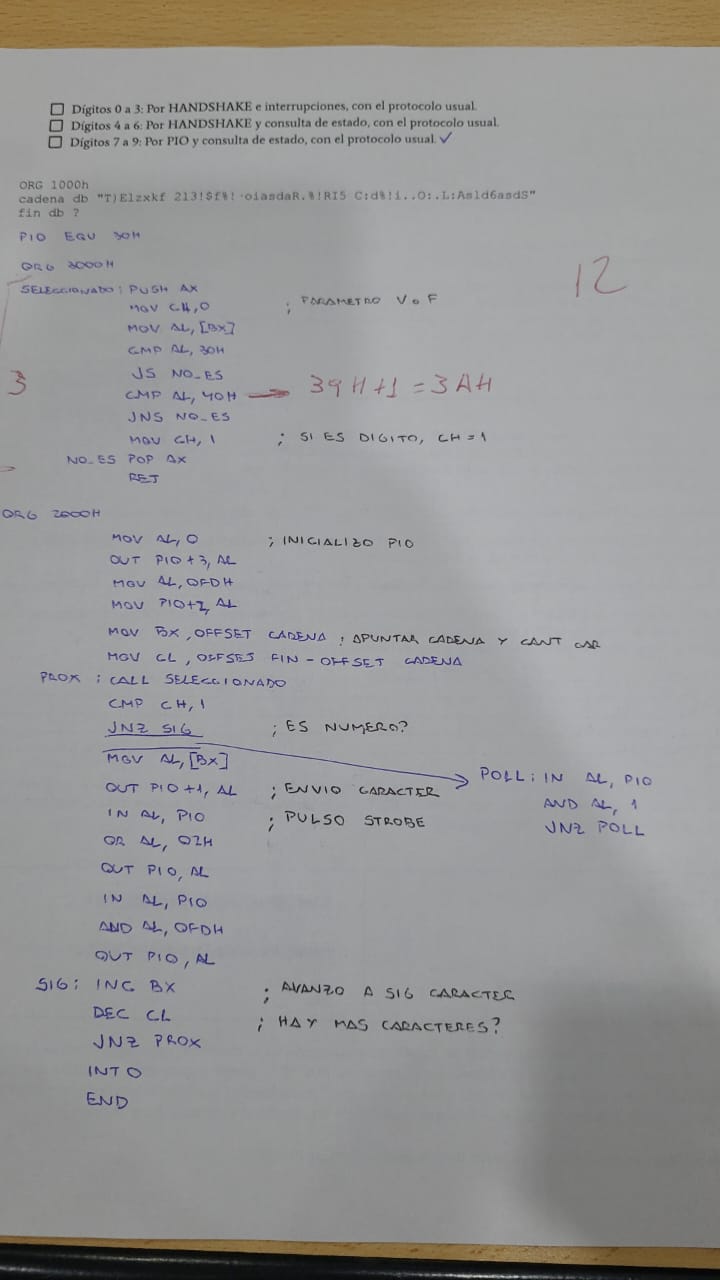 Dígitos 0 a 3: Por HANDSHAKE e interrupciones, con el protocolo usual.
Dígitos 4 a 6: Por HANDSHAKE y consulta de estado, con el protocolo usual.
Dígitos 7 a 9: Por PIO y consulta de estado, con el protocolo usual. ✓
ORG 1000h
cadena db "T)Elzxkf 213!$f%! oiasdaR.%!RI5 C:d%!i..O:.L:As1d6asdS"
fin db ?
PIO EQU 30H
12
ORG 3000H
SELECCIONADO: PUSH AX
MOV CH, 0 ; PARAMETRO V o F
MOV AL, [BX]
CMP AL, 30H
JS NO_ES
3
CMP AL, 40H → 39H+1 = 3AH
JNS NO_ES
MOV CH, 1 ; SI ES DIGITO, CH = 1
NO_ES POP AX
RET
ORG 2000H
MOV AL, 0 ; INICIALIZO PIO
OUT PIO+3, AL
MOV AL, 0FDH
MOV PIO+2, AL
MOV BX, OFFSET CADENA ; APUNTAR CADENA Y CANT CAR
MOV CL, OFFSET FIN - OFFSET CADENA
PROX : CALL SELECCIONADO
CMP CH, 1
JNZ SIG ; ES NUMERO?
MOV AL, [BX]
POLL: IN AL, PIO
AND AL, 1
JNZ POLL
OUT PIO+1, AL ; ENVIO CARACTER
IN AL, PIO ; PULSO STROBE
OR AL, 02H
OUT PIO, AL
IN AL, PIO
AND AL, 0FDH
OUT PIO, AL
SIG: INC BX ; AVANZO A SIG CARACTER
DEC CL ; HAY MAS CARACTERES?
JNZ PROX
INT 0
END